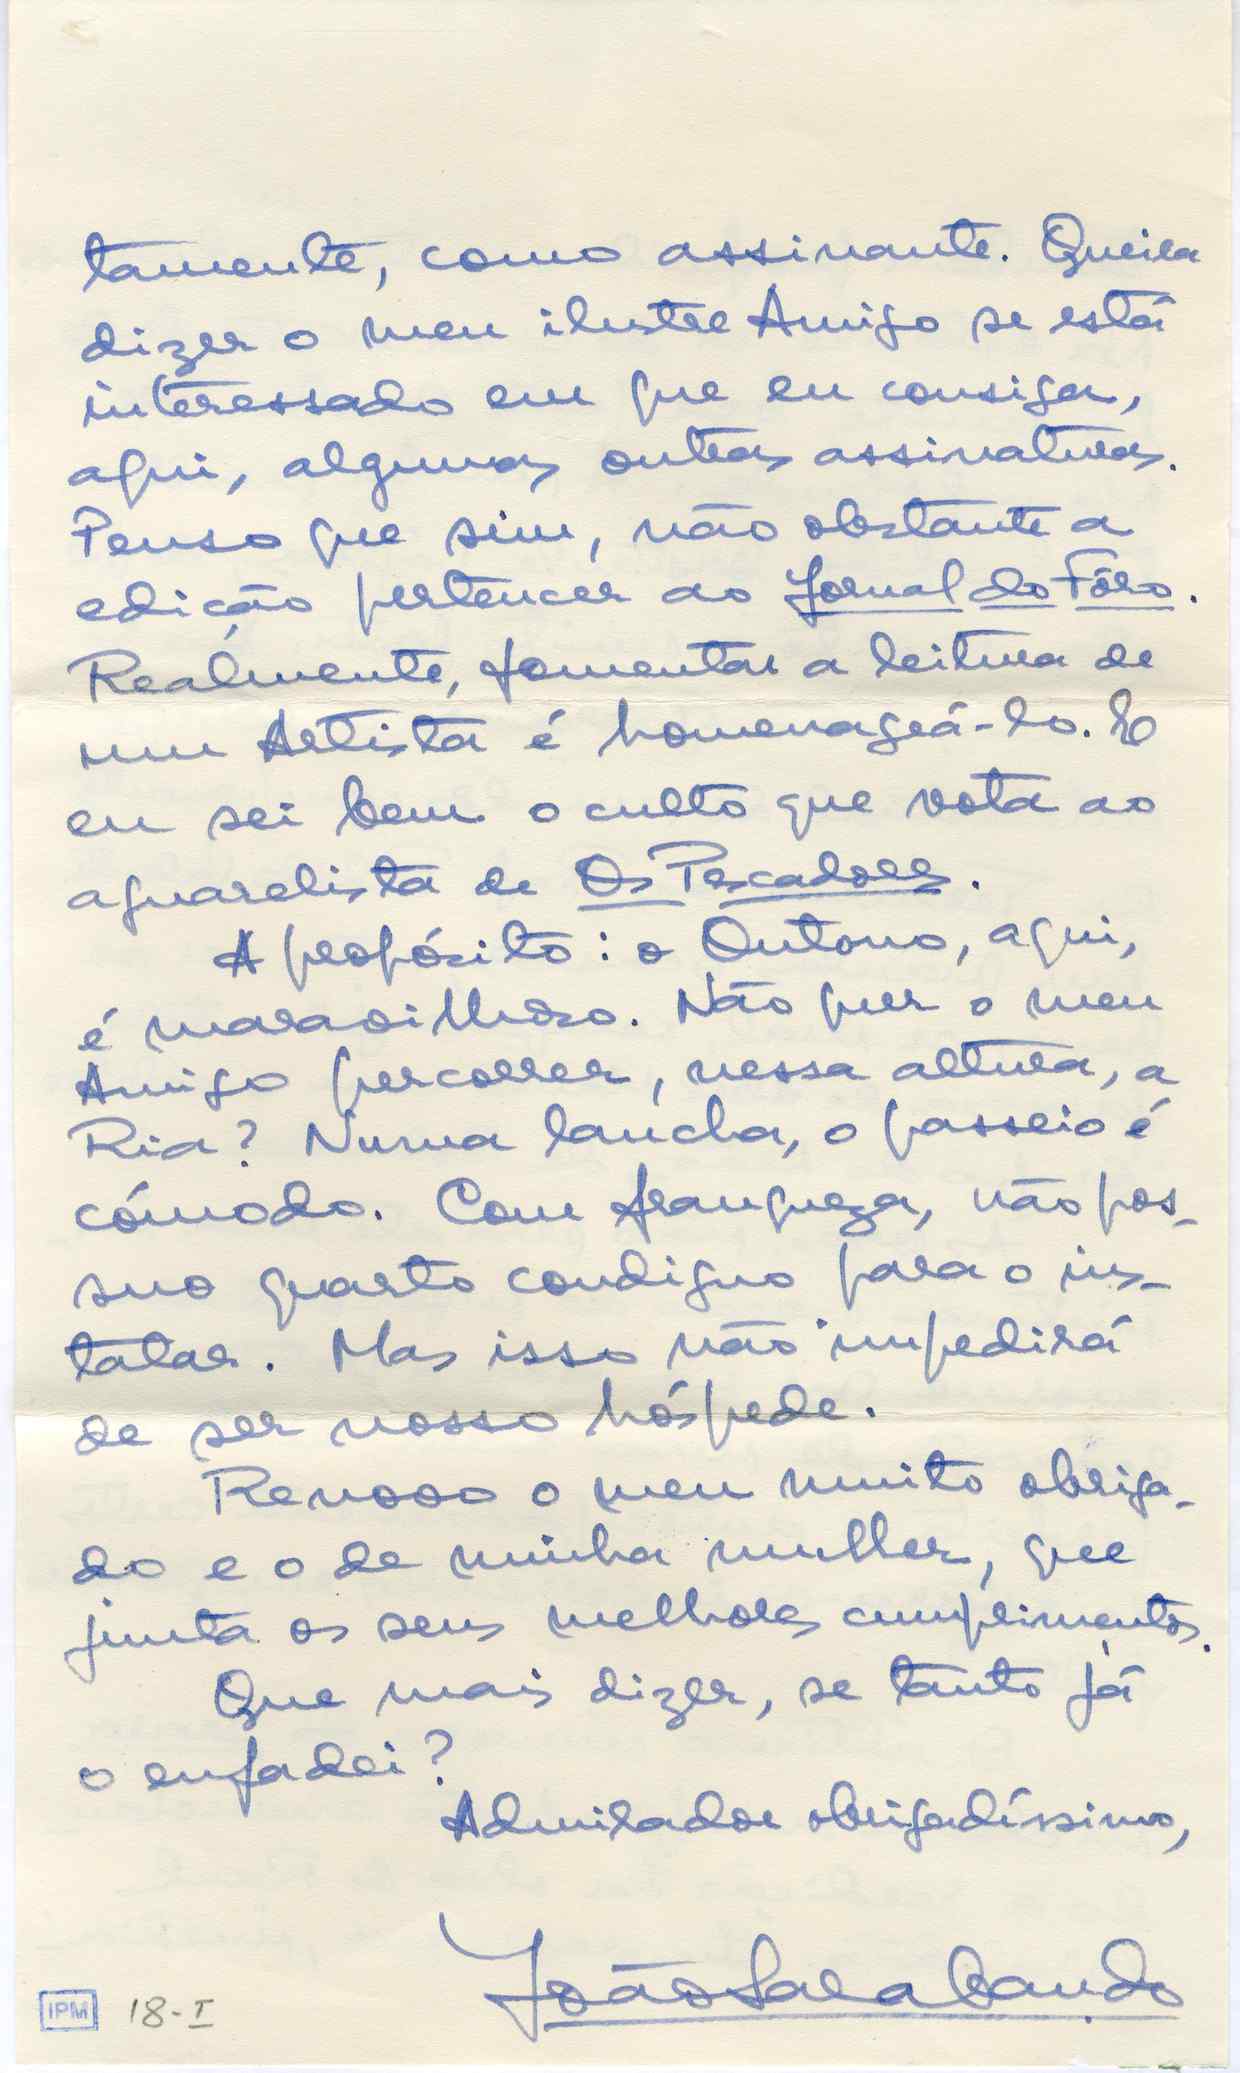 tamente, como assinante. Queira
dizer o meu ilustre Amigo se está
interessado em que eu consiga,
aqui, algumas outras assinaturas.
Penso que sim, não obstante a
edição pertencer ao Jornal do Fôro.
Realmente, fomentar a leitura de
um Artista é homenageá-lo. E
eu sei bem o culto que vota ao
aguarelista de Os Pescadores.
A propósito: o Outono, aqui,
é maravilhoso. Não quer o meu
Amigo percorrer, nessa altura, a
Ria? Numa lancha, o passeio é
cómodo. Com franqueza, não pos-
suo quarto condigno para o ins-
talar. Mas isso não impedirá
de ser nosso hóspede.
Renovo o meu muito obriga-
do e o de minha mulher, que
junta os seus melhores cumprimentos.
Que mais dizer, se tanto já
o enfadei?
Admirador obrigadíssimo,
João Sarabando
IPM 18-I